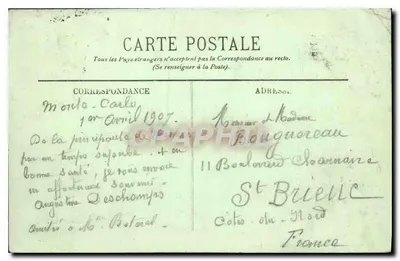 CARTE POSTALE
Tous les Pays étrangers n'acceptent pas la Correspondance au recto.
(Se renseigner à la Poste).
CORRESPONDANCE
ADRESSE
Monte-Carlo
1er Avril 1907.
De la principauté
par un temps superbe + en
bonne santé, je vous envoie
un affectueux souvenir.
Augustine Deschamps
amitié à Mme
Monsieur et Madame
11 Boulevard Charner
St Brieuc
Côtes-du-Nord
France